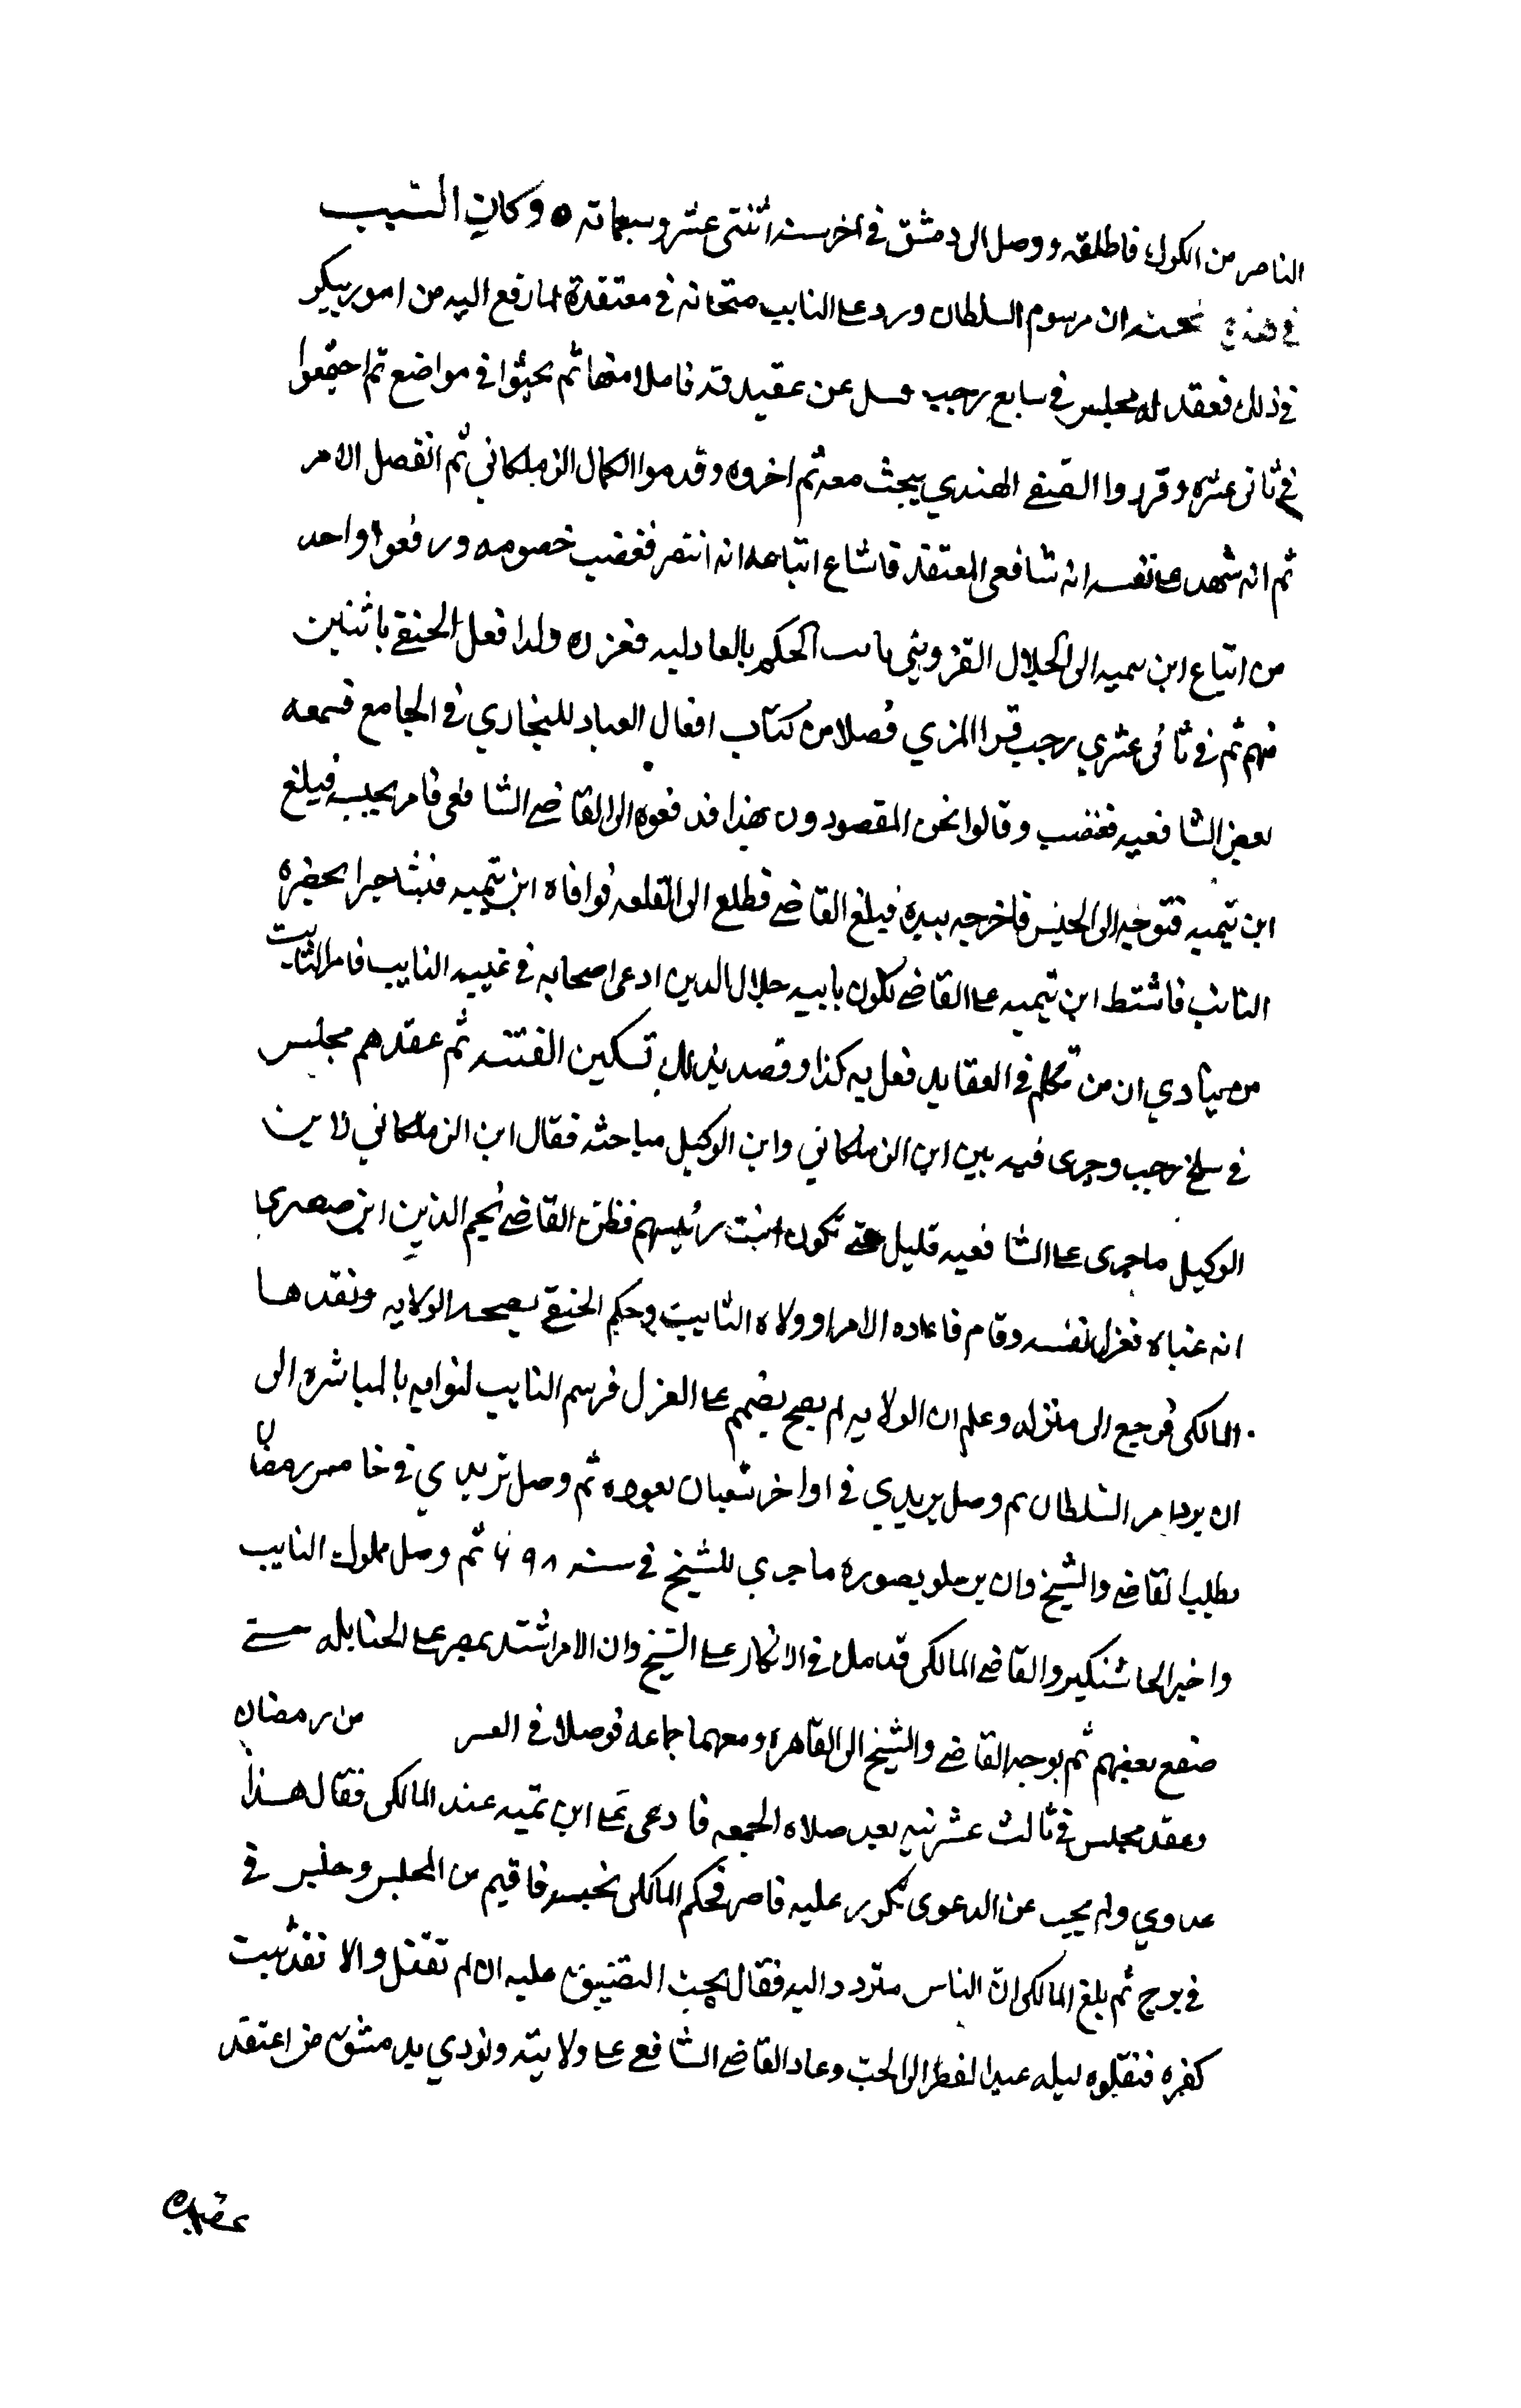 الناصر من الكرك فاطلقه ووصل الى دمشق في آخر سنه اثنتى عشر وسبعمائه ٥ وكان السبب
في هذه المحنه ان مرسوم السلطان ورد على النايب متحانه في معتقده لما رفع اليه من امور ينكر
في ذلك فعقد له مجلس في سابع رجب وسل عن عقيدته فاملا منها ثم بحثوا في مواضع ثم اجتمعوا
في ثاني عشره وقرروا الصفي الهندي يبحث معه ثم اخروه وقدموا الكمال الزملكاني ثم انفصل الامر
ثم انه شهد على نفسه انه شافعي المعتقد فاشاع اتباعه انه انتصر فغضب خصومه ورفعوا واحد
من اتباع ابن تيميه الى الجلال القزويني نايب الحكم بالعادليه فعزره ولدا فعل الحنفي باثنين
منهم ثم في ثاني عشري رجب قرا المزي فصلا من كتاب افعال العباد للبخاري في الجامع فسمعه
بعض الشافعيه فغضب وقالوا نحن المقصودون بهذا فدفعوه الى القاضي الشافعي فامر بحبسه فبلغ
ابن تيميه فتوجه الى الحبس فاخرجه بيده فبلغ القاضي فطلع الى القلعه فوافاه ابن تيميه فتشاجرا بحضره
النائب فاشتط ابن تيميه على القاضي لكون نايبه جلال الدين اذى اصحابه في غيبه النايب فامر النايب
من ينادي ان من تكلم في العقايد فعل به كذا وقصد بذلك تسكين الفتنه ثم عقد هم مجلس
في سلخ رجب وجرى فيه بين ابن الزملكاني وابن الوكيل مباحثه فقال ابن الزملكاني لابن
الوكيل ما جرى على الشافعيه قليل حتى تكون انت رئيسهم فظن القاضي نجم الدين ابن صصرى
انه عناه فعزل نفسه وقام فاعاده الامرا وولاه النايب وحكم الحنفي بصحه الولايه ونفدها
المالكي فرجع الى منزله وعلم ان الولايه لم يصح فصمم على العزل فرسم النايب لنوابه بالمباشره الى
ان يرد امر السلطان ثم وصل بريدي في اواخر شعبان بعوده ثم وصل بريدي في خامس رمضان
بطلب القاضي والشيخ وان يرسلو بصوره ما جرى للشيخ في سنه ٦٩٨ ثم وصل مملوك النايب
واخبر الجاشنكير والقاضي المالكي قد قام في الانكار على الشيخ وان الامر اشتد بمصر على الحنابله حتى
صفع بعضهم ثم توجه القاضي والشيخ الى القاهره ومعهما جماعه فوصلا في العشر من رمضان
وعقد مجلس في ثالث عشرنيه بعد صلاه الجمعه فادعى على ابن تيميه عند المالكي فقال هذا
عدوي ولم يجب عن الدعوى فكرر عليه فاصر فحكم المالكي بحبسه فاقيم من المجلس وحبس في
في برج ثم بلغ المالكي ان الناس متردد اليه فقال يجب التضييق عليه ان لم تقتل والا فقد ثبت
كفره فنقلوه ليله عيد الفطر الى الجب وعاد القاضي الشافعي على ولايته ونودي بدمشق من اعتقد
عقيده